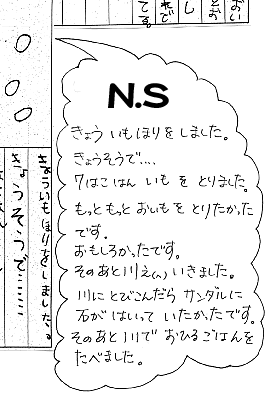 おい
てお
し
れで
てす。
N.S
きょう いもほりを しました。
きょうそうで‥‥
7はこはん いも を とりました。
もっと もっと おいもを とりたかった
です。
おもしろかったです。
そのあと川え(へ) いきました。
川に とびこんだら サンダルに
石が はいって いたかったです。
そのあと 川で おひるごはんを
たべました。
きょういもほりをしました。
きょうそうで‥‥‥